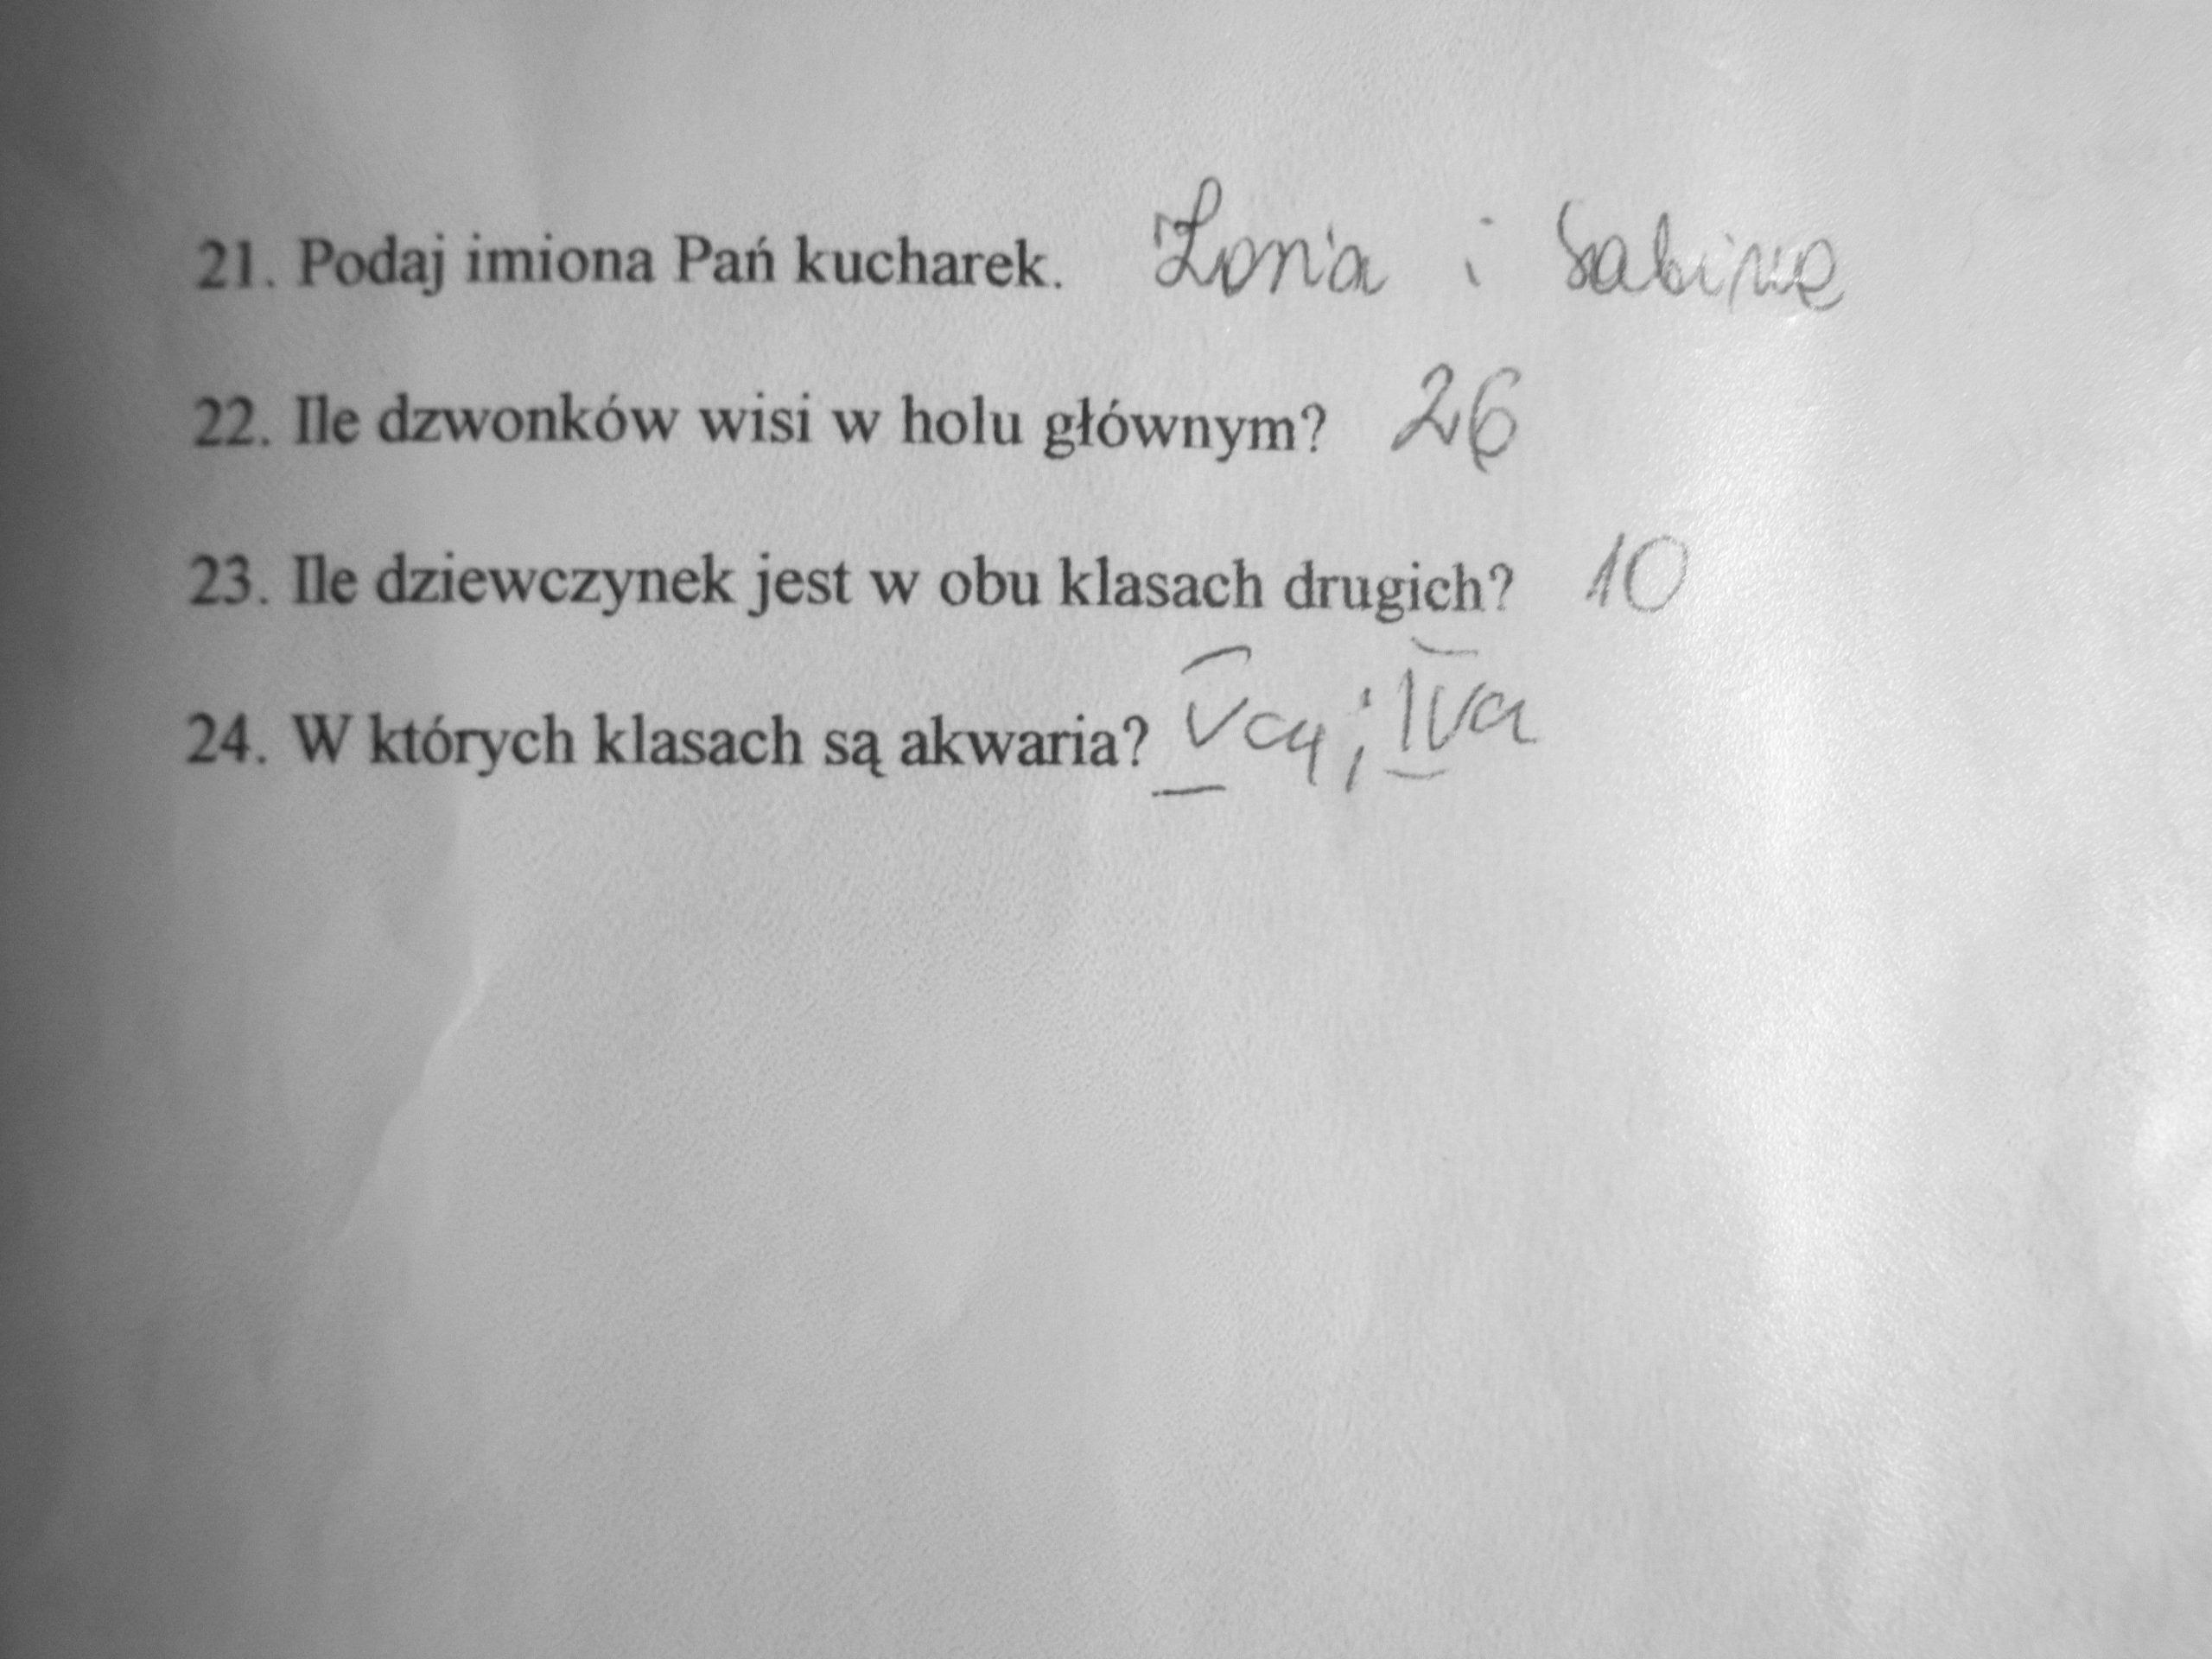 21. Podaj imiona Pań kucharek. i Sabina
22. Ile dzwonków wisi w holu głównym? 26
23. Ile dziewczynek jest w obu klasach drugich? 10
24. W których klasach są akwaria? IVa